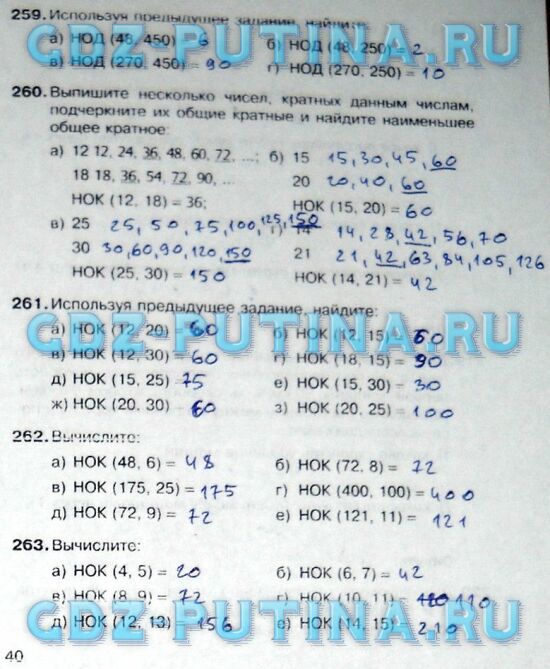 259. Используя предыдущее задание, найдите:
а) НОД (48, 450) = 6 б) НОД (48, 250) = 2
в) НОД (270, 450) = 90 г) НОД (270, 250) = 10
GDZ-PUTINA.RU
260. Выпишите несколько чисел, кратных данным числам,
подчеркните их общие кратные и найдите наименьшее
общее кратное:
а) 12 12, 24, 36, 48, 60, 72, ...; б) 15 15, 30, 45, 60
18 18, 36, 54, 72, 90, ... 20 20, 40, 60
НОК (12, 18) = 36; НОК (15, 20) = 60
в) 25 25, 50, 75, 100, 125, 150 г) 14 14, 28, 42, 56, 70
30 30, 60, 90, 120, 150 21 21, 42, 63, 84, 105, 126
НОК (25, 30) = 150 НОК (14, 21) = 42
261. Используя предыдущее задание, найдите:
а) НОК (12, 20) = 60 б) НОК (12, 15) = 60
GDZ-PUTINA.RU
в) НОК (12, 30) = 60 г) НОК (18, 15) = 90
д) НОК (15, 25) = 75 е) НОК (15, 30) = 30
ж) НОК (20, 30) 60 з) НОК (20, 25) = 100
262. Вычислите:
а) НОК (48, 6) = 48 б) НОК (72, 8) = 72
в) НОК (175, 25) = 175 г) НОК (400, 100) = 400
д) НОК (72, 9) = 72 е) НОК (121, 11) = 121
263. Вычислите:
а) НОК (4, 5) = 20 б) НОК (6, 7) = 42
в) НОК (8, 9) = 72 г) НОК (10, 11) = 110
GDZ-PUTINA.RU
д) НОК (12, 13) = 156 е) НОК (14, 15) = 210
40